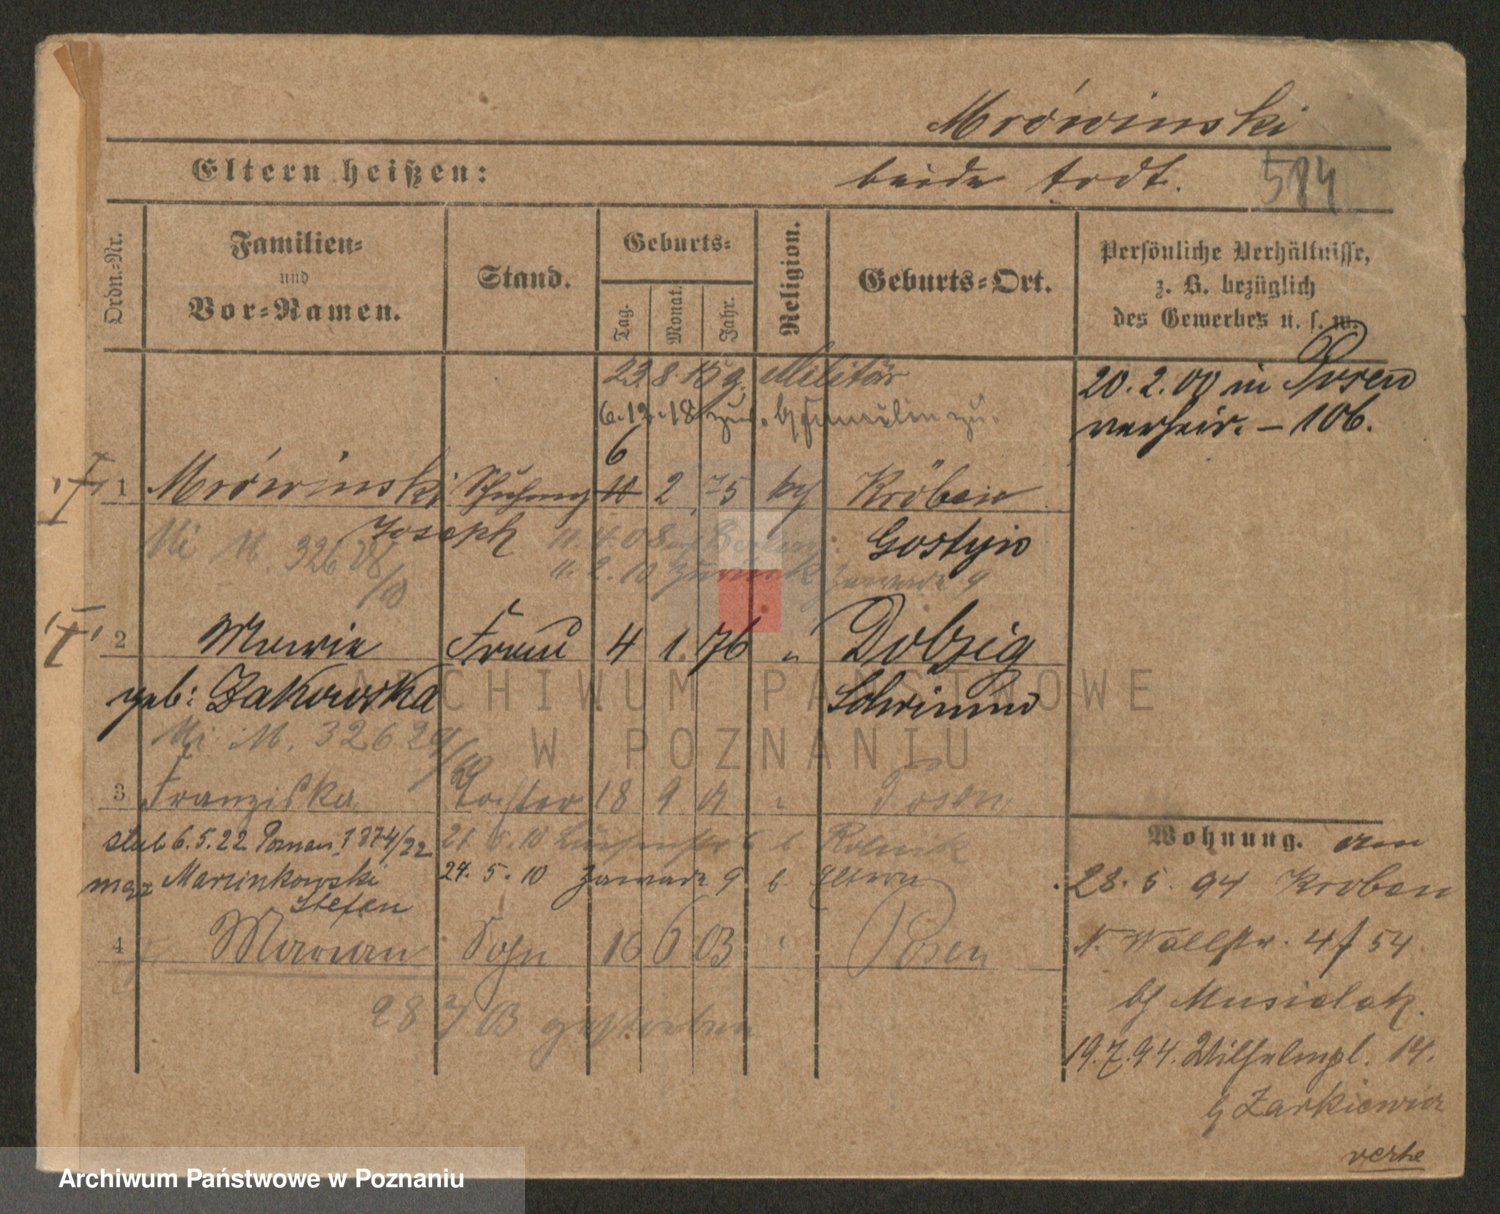 Mrówinski
Eltern heißen: beide todt. 584
Ordn.-Nr.
Familien-
und
Vor-Namen.
Stand.
Geburts-
Tag. Monat. Jahr.
Religion.
Geburts-Ort.
Persönliche Verhältnisse,
z. B. bezüglich
des Gewerbes u. s. w.
23. 8. 15 g. Militär
6. 12. 18 zur.
20. 2. 00 in Posen
verheir. – 106.
6
1 Mrówinski 11 2 75 Kröben
Joseph Gostyn
M. 326 08/10
11. 2. 10 Zawade 9
2 Marie Frau 4 1. 76 " Dolzig
geb: Zakowska Schrimm
M. 326 29/10
3 Franziska Tochter 18 9 01 " Posen
slub 6. 5. 22 Poznan 1374/22
mąz Marcinkowski 24. 5. 10 Zawade 9 b. Eltern
Stefan
4 Marian Sohn 16 6 03 " Posen
28 7 03 gestorben
Wohnung. am
28. 5. 94 Kroben
N. Wallstr. 4/54
bei Musialak.
19. 7. 94. Wilhelmpl. 14.
b Zarkiewicz
verte
ARCHIWUM PAŃSTWOWE
W POZNANIU
Archiwum Państwowe w Poznaniu